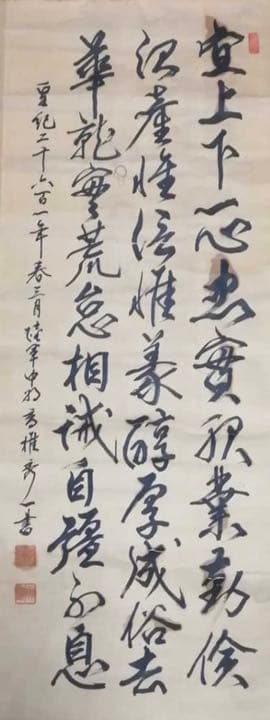 宜上下一心忠實服業勤儉
治産惟信惟義醇厚成俗去
華就實荒怠相誡自彊不息
皇紀二千六百一年春三月陸軍中将一書